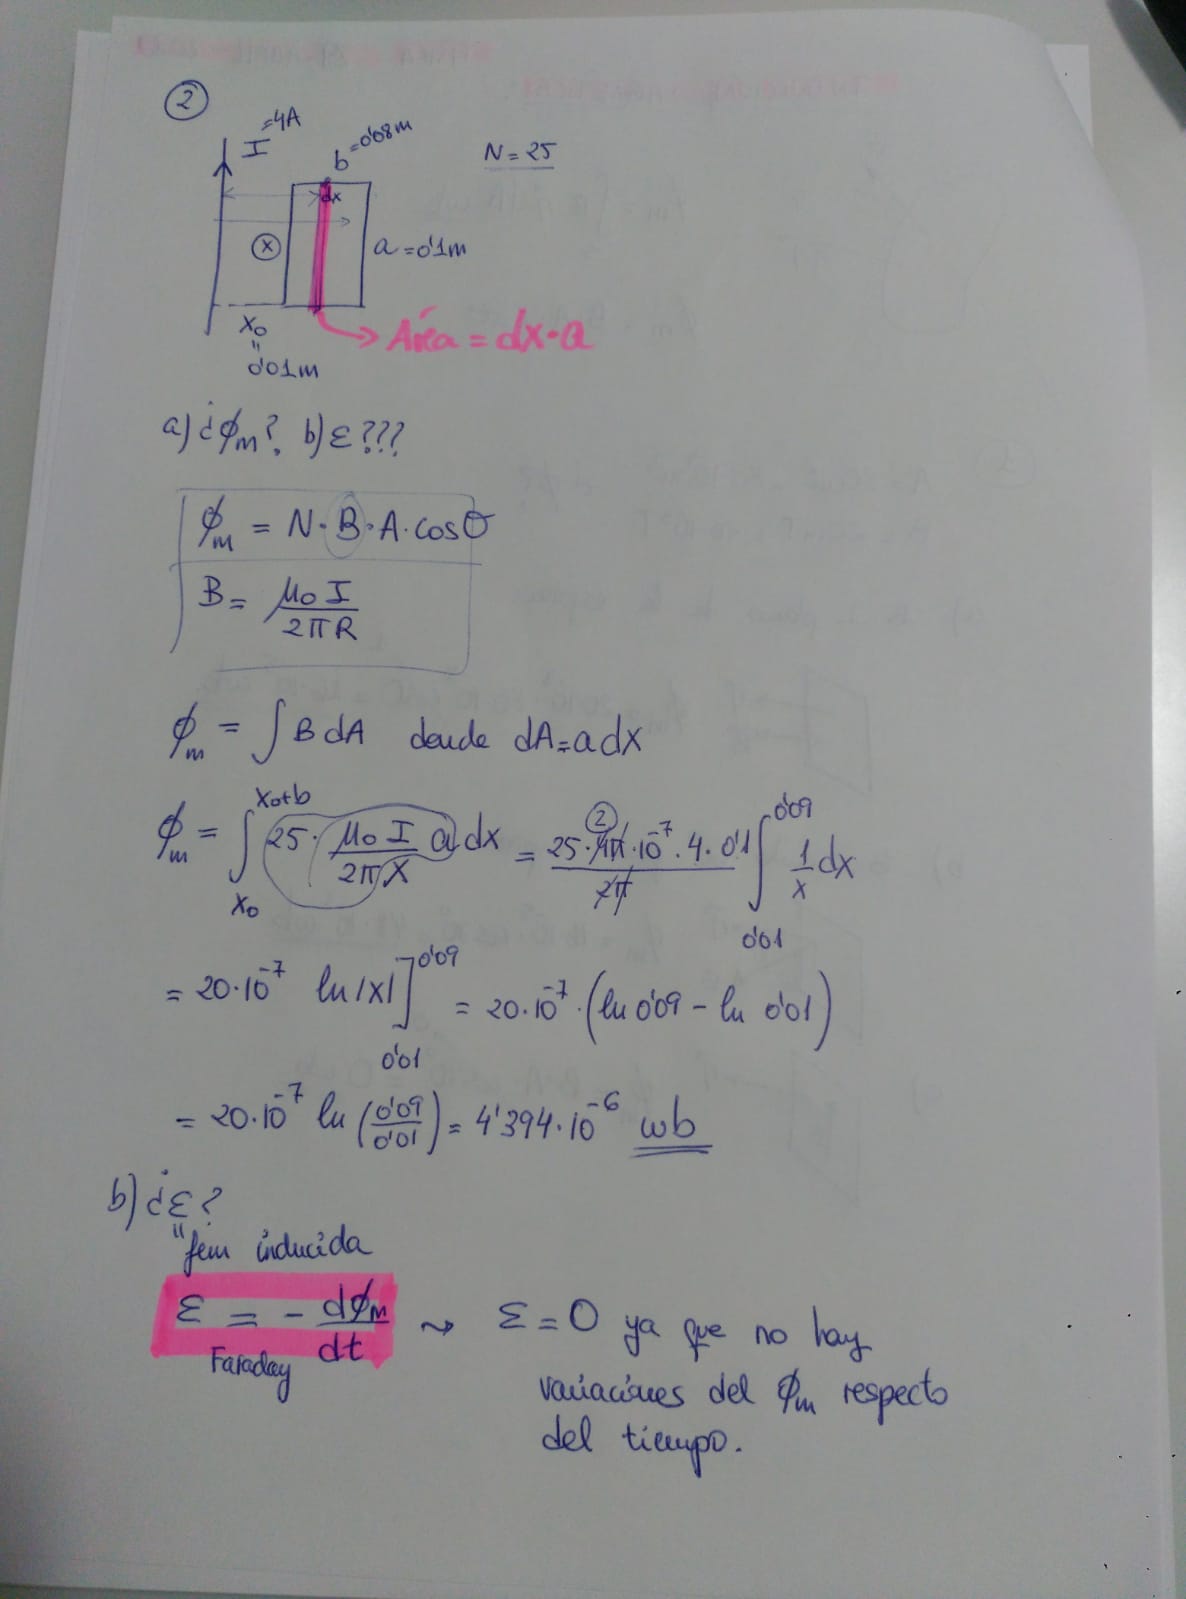 2
I =4A
b =0'08m
N = 25
dx
x
a = 0'1m
x₀
"
0'01m
Área = dx·a
a) ¿ϕm?. b) ε???
ϕm = N·B·A·cosθ
B = μ₀ I / 2πR
ϕm = ∫ B dA donde dA = a dx
ϕm = ∫_{x₀}^{x₀+b} 25· μ₀ I / 2πx a dx = 25·4π·10⁻⁷·4·0'1 / 2π ∫_{0'01}^{0'09} 1/x dx
2
= 20·10⁻⁷ ln|x| ]_{0'01}^{0'09} = 20·10⁻⁷·(ln 0'09 − ln 0'01)
= 20·10⁻⁷ ln (0'09/0'01) = 4'394·10⁻⁶ wb
b) ¿ε?
"
fem inducida
ε = − dϕm/dt ⇝ ε = 0 ya que no hay
Faraday
variaciones del ϕm respecto
del tiempo.